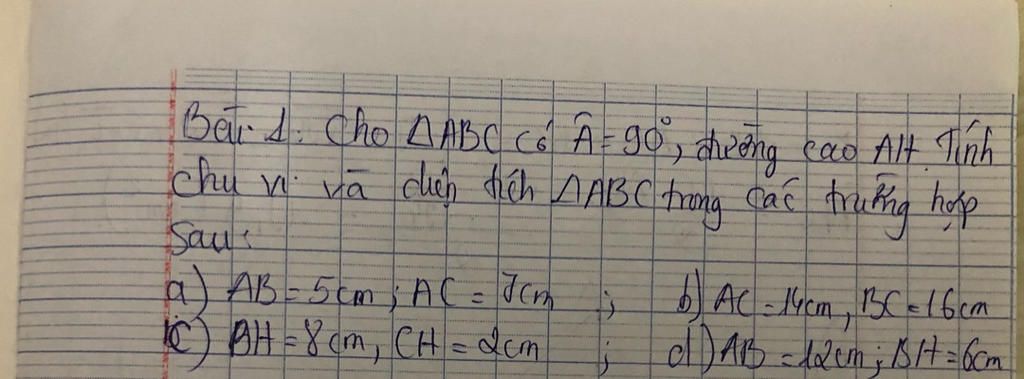 Bài 1: Cho △ABC có Â = 90°, đường cao AH. Tính
chu vi và diện tích △ABC trong các trường hợp
sau:
a) AB = 5cm; AC = 7cm ; b) AC = 14cm, BC = 16cm
c) BH = 8cm, CH = 2cm ; d) AB = 12cm; BH = 6cm